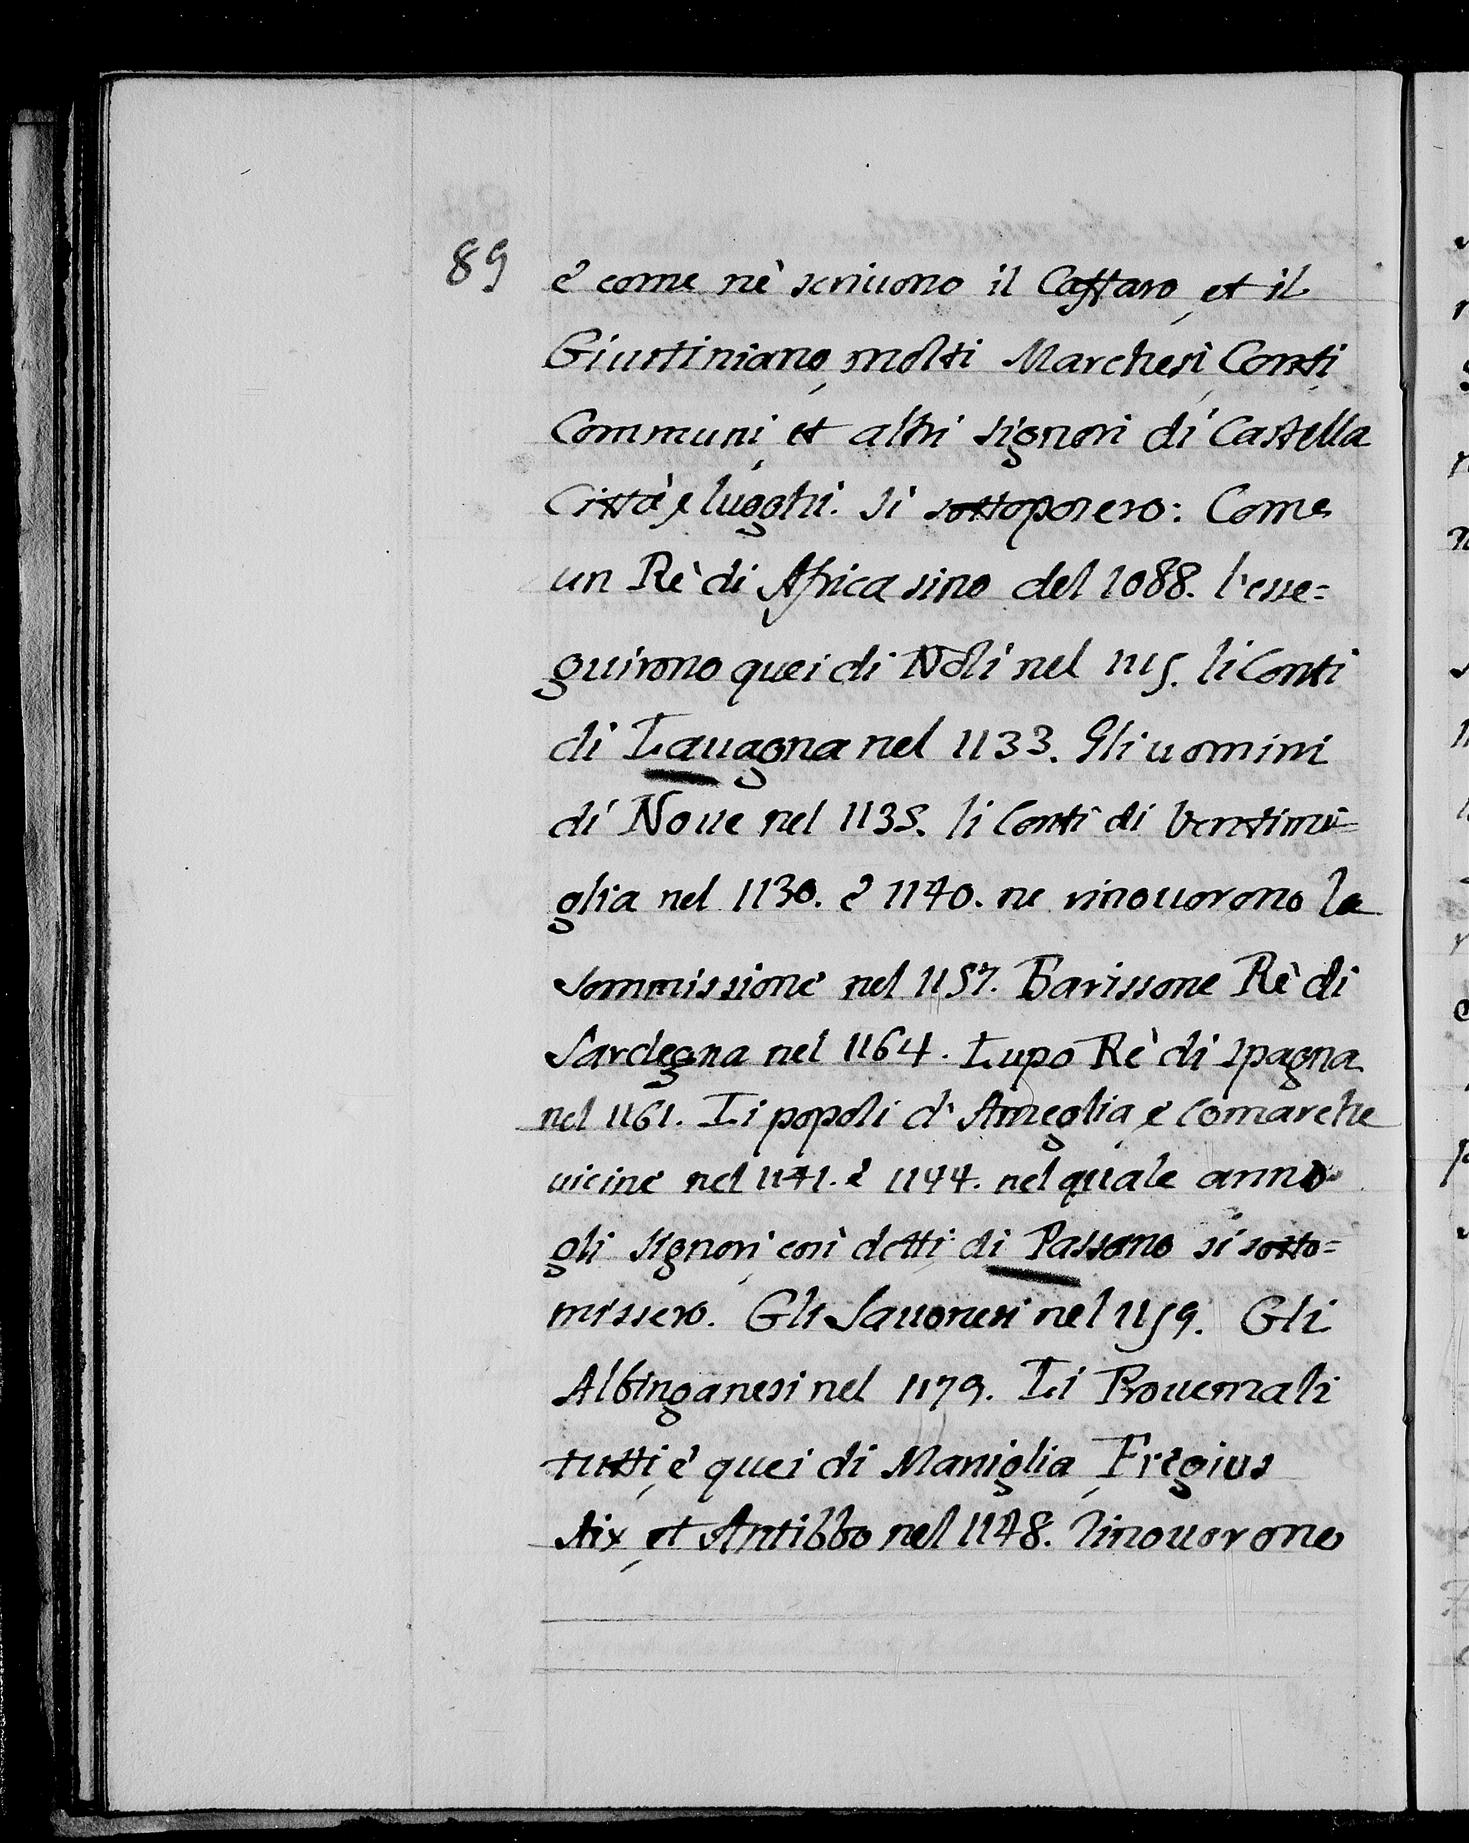 89
è come nè scriuono il Caffaro, et il
Giustiniano, molti Marchesi, Conti,
Communi, et altri signori di Castella
Città, e luoghi. si sottoposero: Come
un Rè di Africa sino del 1088. l'esse=
guirono quei di Noli nel 1115. li Conti
di Lauagna nel 1133. Gli uomini
di Noue nel 1135. li Conti di Ventimi=
glia nel 1130. è 1140. ne rinouorono la
sommissione nel 1157. Barissone Rè di
Sardegna nel 1164. Lupo Rè di spagna
nel 1161. Li popoli d'Ameglia, e Comarche
uicine nel 1141. è 1144. nel quale anno
gli signori, cosi detti di Passano si sotto=
missero. Gli Sauonesi nel 1159. Gli
Albinganesi nel 1179. Li Prouenzali
tutti, è quei di Marsiglia, Fregius
Aix, et Antibbo nel 1148. rinouorono